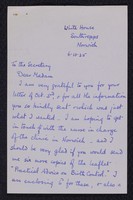 White House
Norwich
To the Secretary
Dear Madam
I am very grateful to you for your
letter of Oct 2nd & for all the information
you so kindly that which was just
what I wanted. I am hoping to get
in touch with the nurse in charge
of the clinic in Norwich, and
should be very glad if you would send
me six more copies of the leaflet
"Practical Advice on Birth Control." I
am enclosing for these, & also a